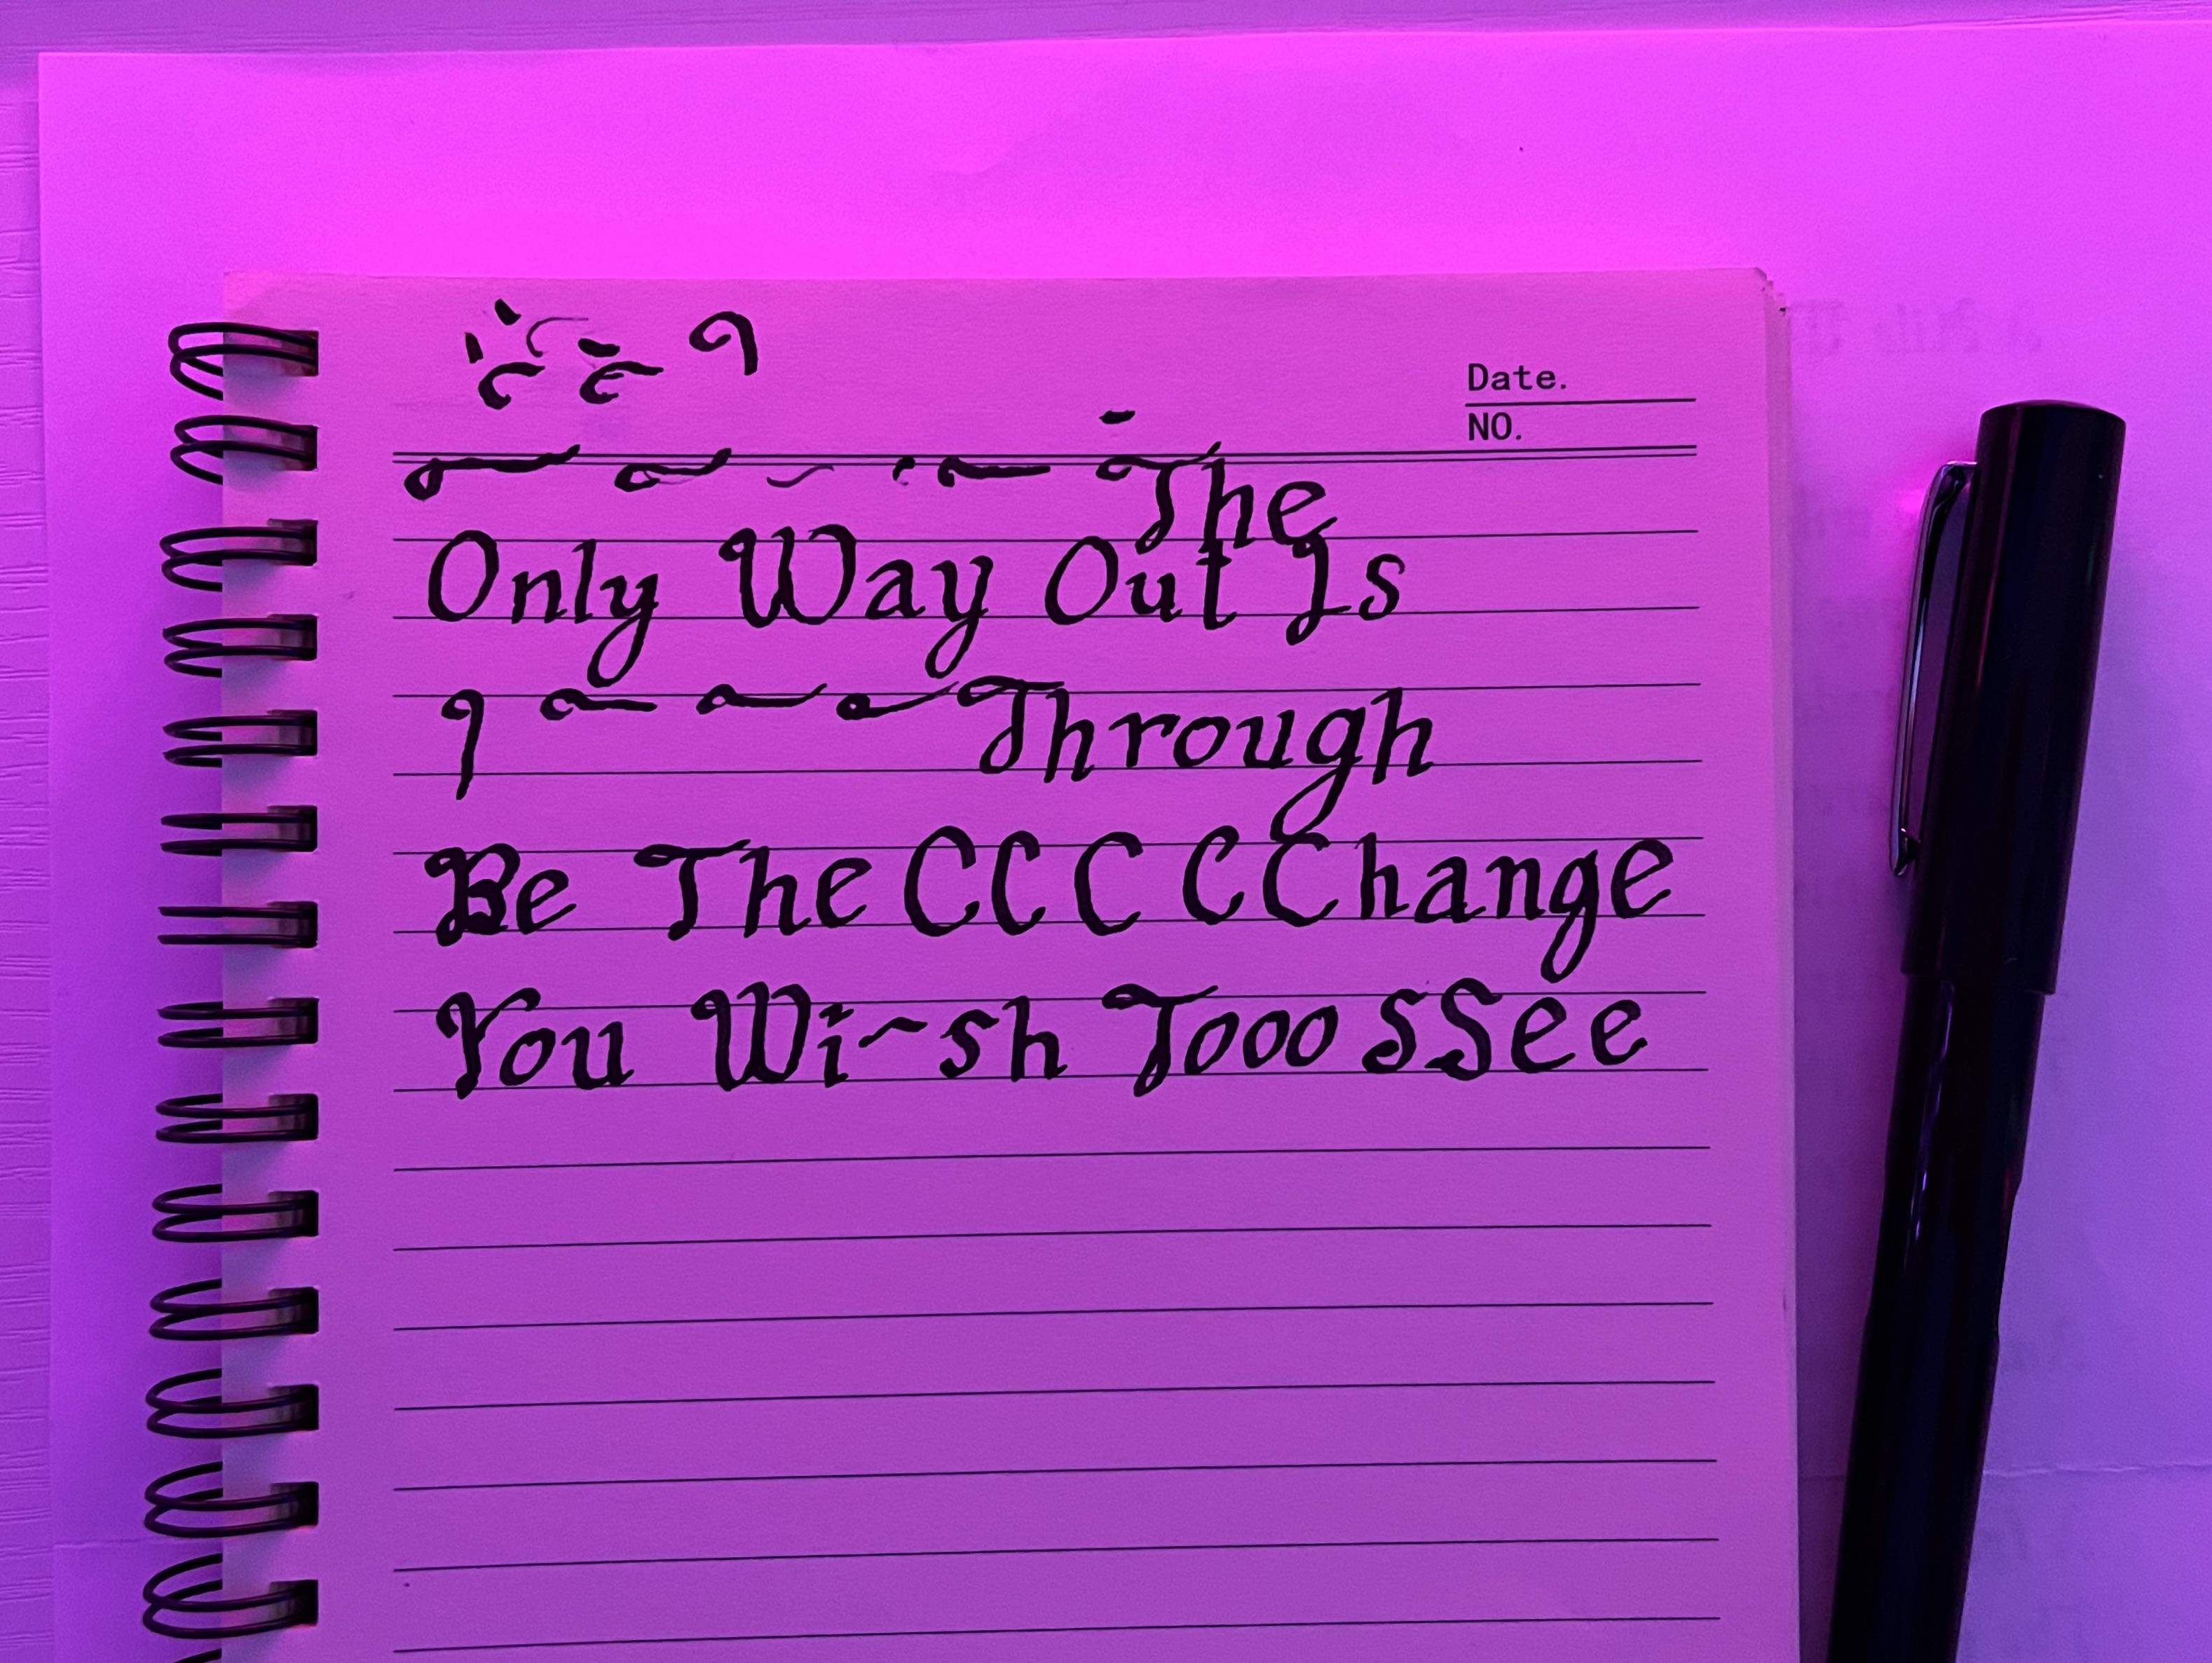 Date.
NO.
The
Only Way Out Is
Through
Be The CCC CChange
You Wi~sh Tooo SSee